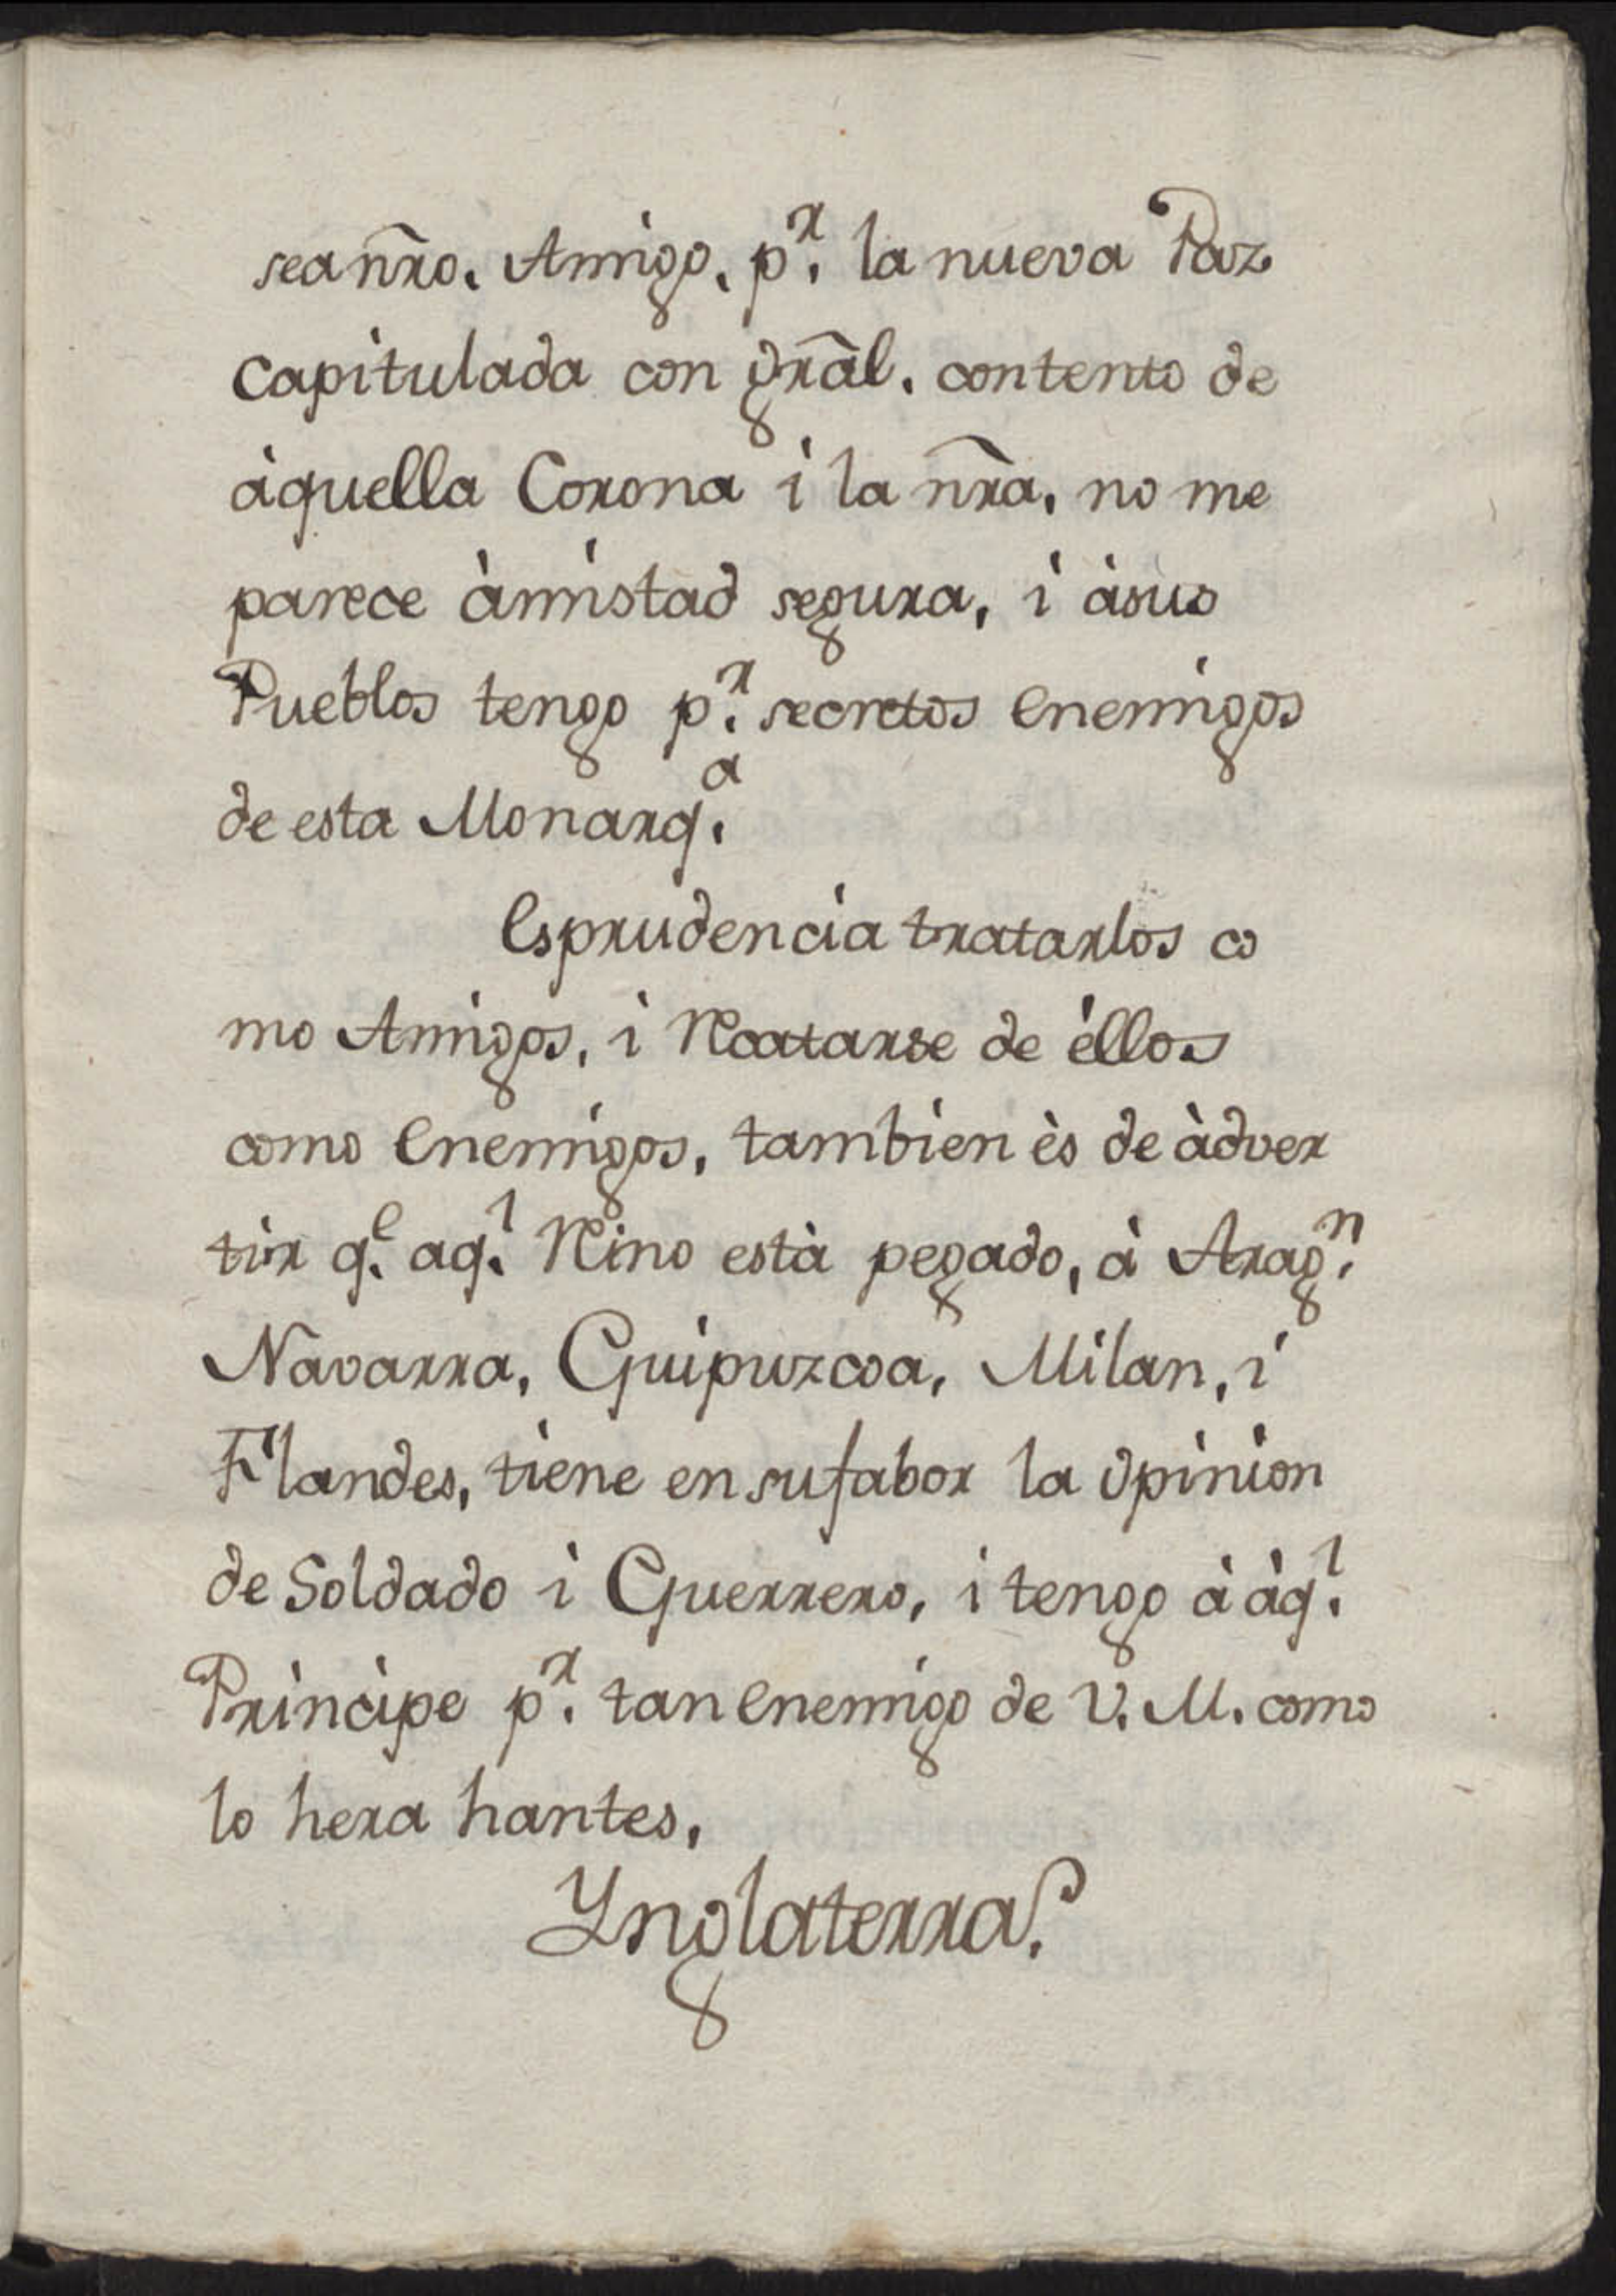 sea nr̃o. Amigo. pʳ. la nueva Paz
capitulada con gr̃al. contento de
àquella Corona i la nr̃a. no me
parece àmistad segura, i àsus
Pueblos tengo pʳ. secretos enemigos
de esta Monarqᵃ.
Esprudencia tratarlos co
mo Amigos, i Rcatarse de éllos
como enemigos, tambien ès de àdver
tir qᵉ. aqˡ. Rino està pegado, à Aragⁿ.
Navarra, Guipuzcoa, Milan, i
Flandes, tiene en su fabor la opinion
de Soldado i Guerrero, i tengo à àqˡ.
Principe pʳ. tan enemigo de V. M. como
lo hera hantes,
Ynglaterra.